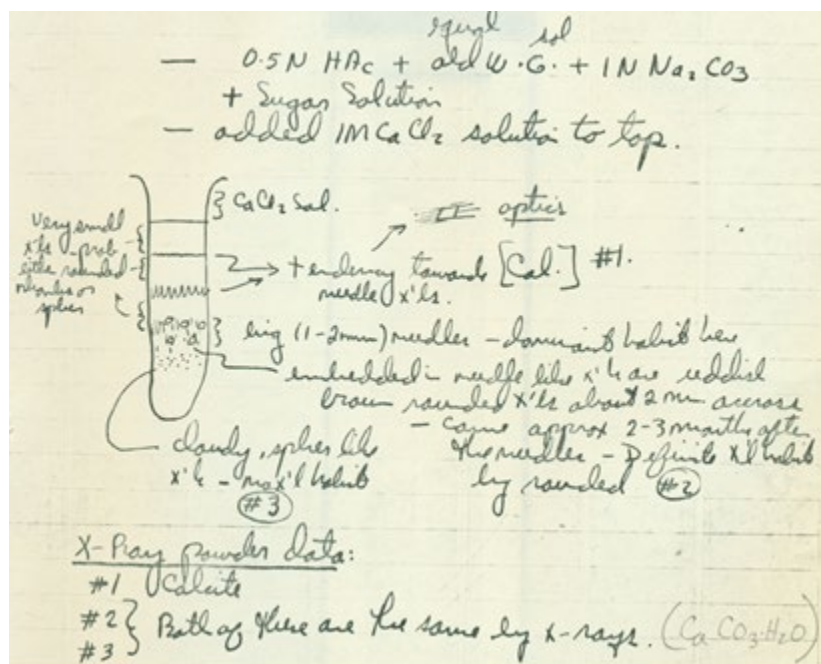 equal sol
— 0.5N HAc + old W.G. + 1N Na2CO3
+ Sugar Solution
— added 1M CaCl2 solution to top.
CaCl2 Sol.
optics
Very small
x'ls - prob
either rounded
rhombs or
spheres
→ tendency towards [Cal.] #1.
needle x'ls.
long (1-2mm) needles - dominant habit here
embedded in needle like x'ls are reddish
brown rounded x'ls about 2 mm accross
- came approx 2-3 months after
the needles - Definite x'l habit
by rounded #2
cloudy, spheres like
x'ls - no x'l habit
#3
X-Ray powder data:
#1 Calcite
#2
#3
Both of these are the same by x-rays. (CaCO3·H2O)